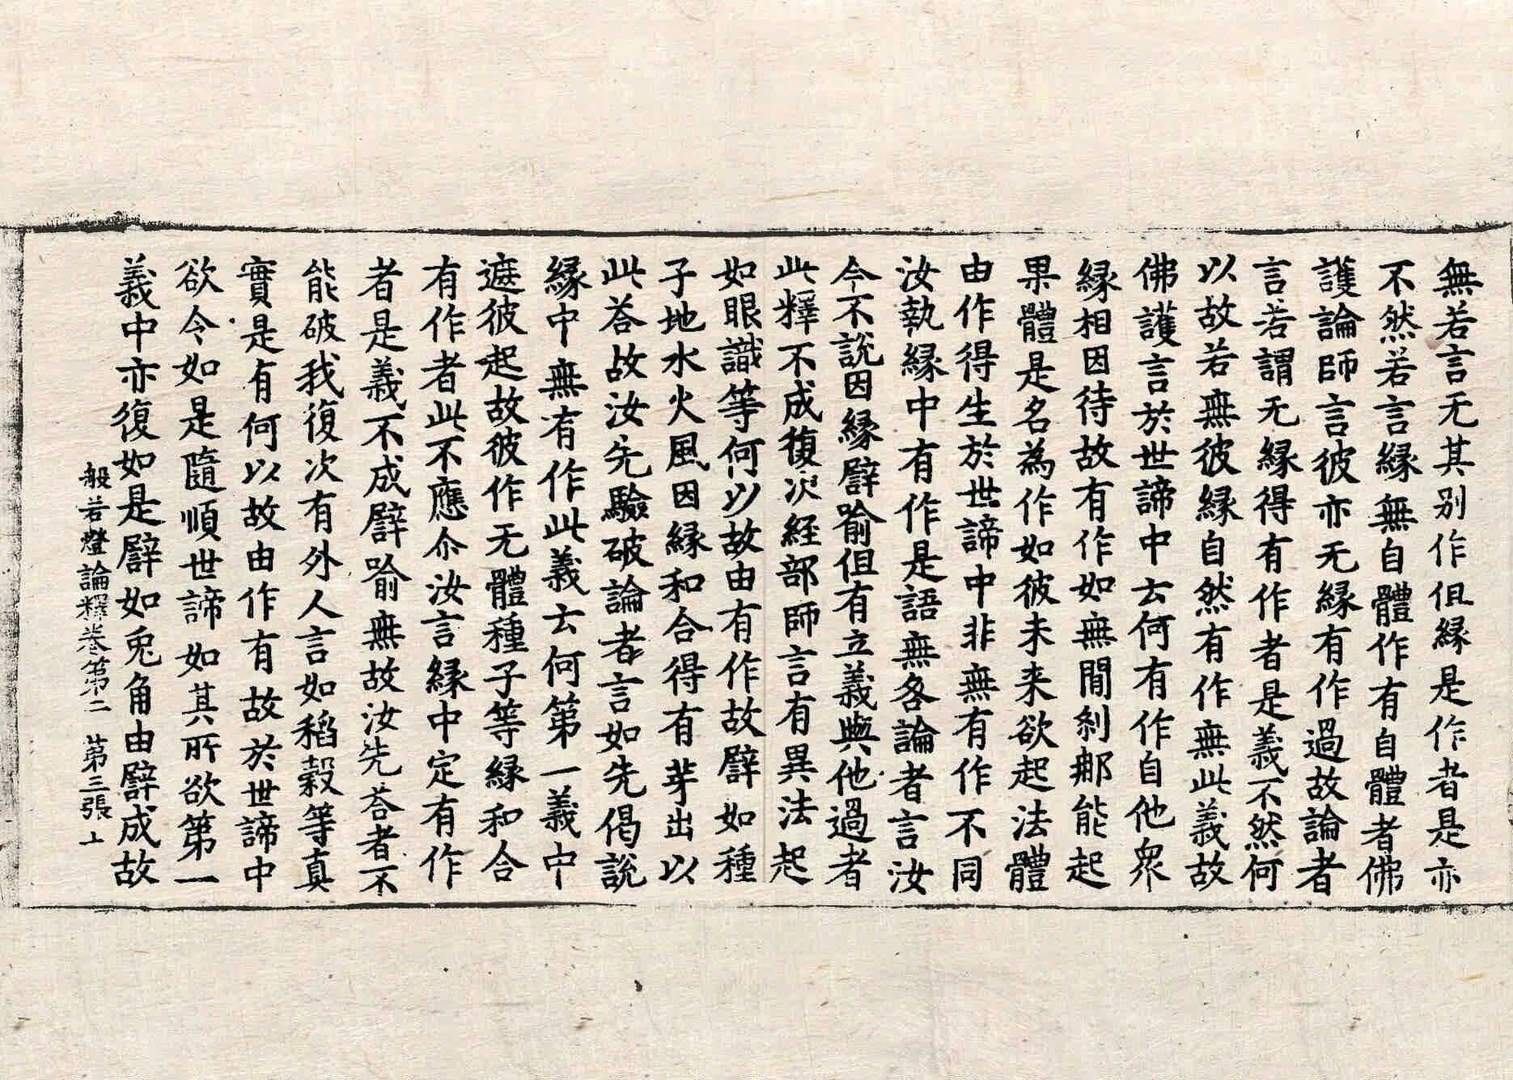 無若言无其別作但縁是作者是亦
不然若言縁無自體作有自體者佛
護論師言彼亦无縁有作過故論者
言若謂无縁得有作者是義不然何
以故若無彼縁自然有作無此義故
佛護言於世諦中云何有作自他衆
縁相因待故有作如無間剎那能起
果體是名為作如彼未来欲起法體
由作得生於世諦中非無有作不同
汝執縁中有作是語無咎論者言汝
今不說因縁譬喻但有立義與他過者
此釋不成復次経部師言有異法起
如眼識等何以故由有作故譬如種
子地水火風因縁和合得有芽出以
此荅故汝先驗破論者言如先偈說
縁中無有作此義云何第一義中
遮彼起故彼作无體種子等縁和合
有作者此不應尒汝言縁中定有作
者是義不成譬喻無故汝先荅者不
能破我復次有外人言如稻穀等真
實是有何以故由作有故於世諦中
欲令如是隨順世諦如其所欲第一
義中亦復如是譬如兎角由譬成故
般若燈論釋卷第二　第三張　上